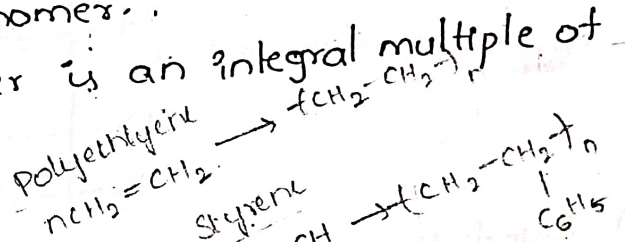 nomer..
er is an integral multiple of
Polyethlyene
nCH2=CH2 → (CH2-CH2-)n
Styrene
CH → (CH2-CH2)n
C6H5